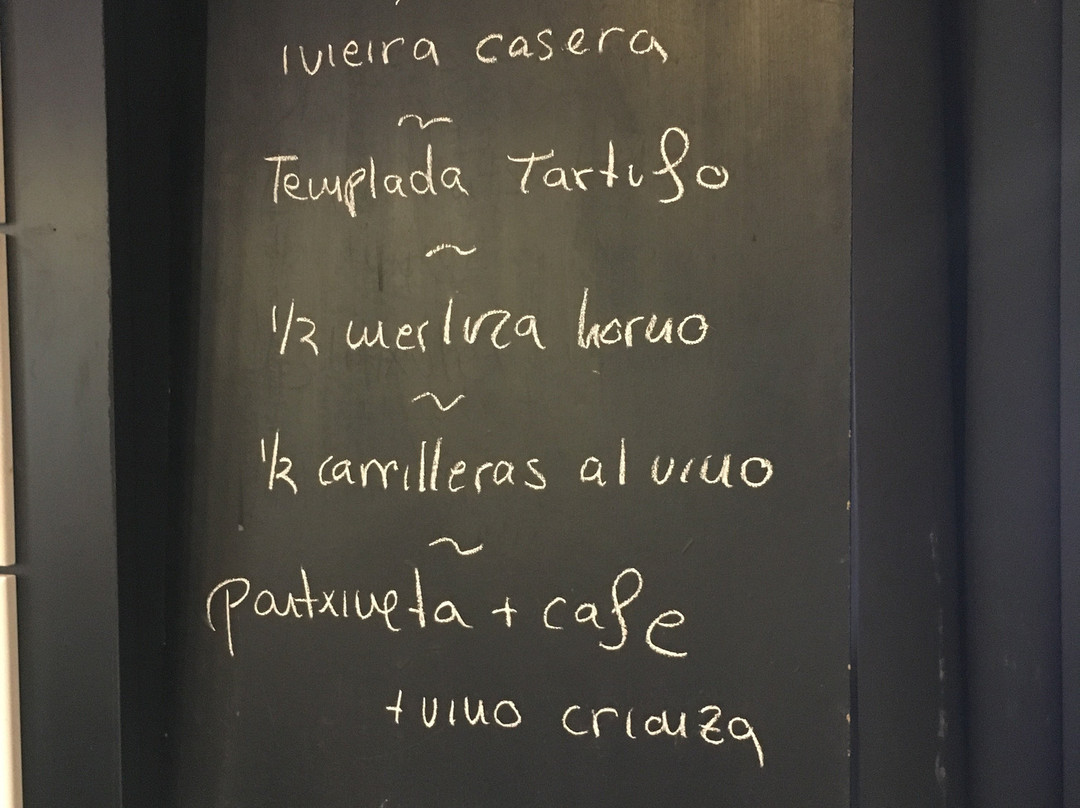 vieira casera
~
Templada Tartufo
~
1/2 merluza horno
~
1/2 carrilleras al vino
~
pantxineta + cafe
+ vino crianza